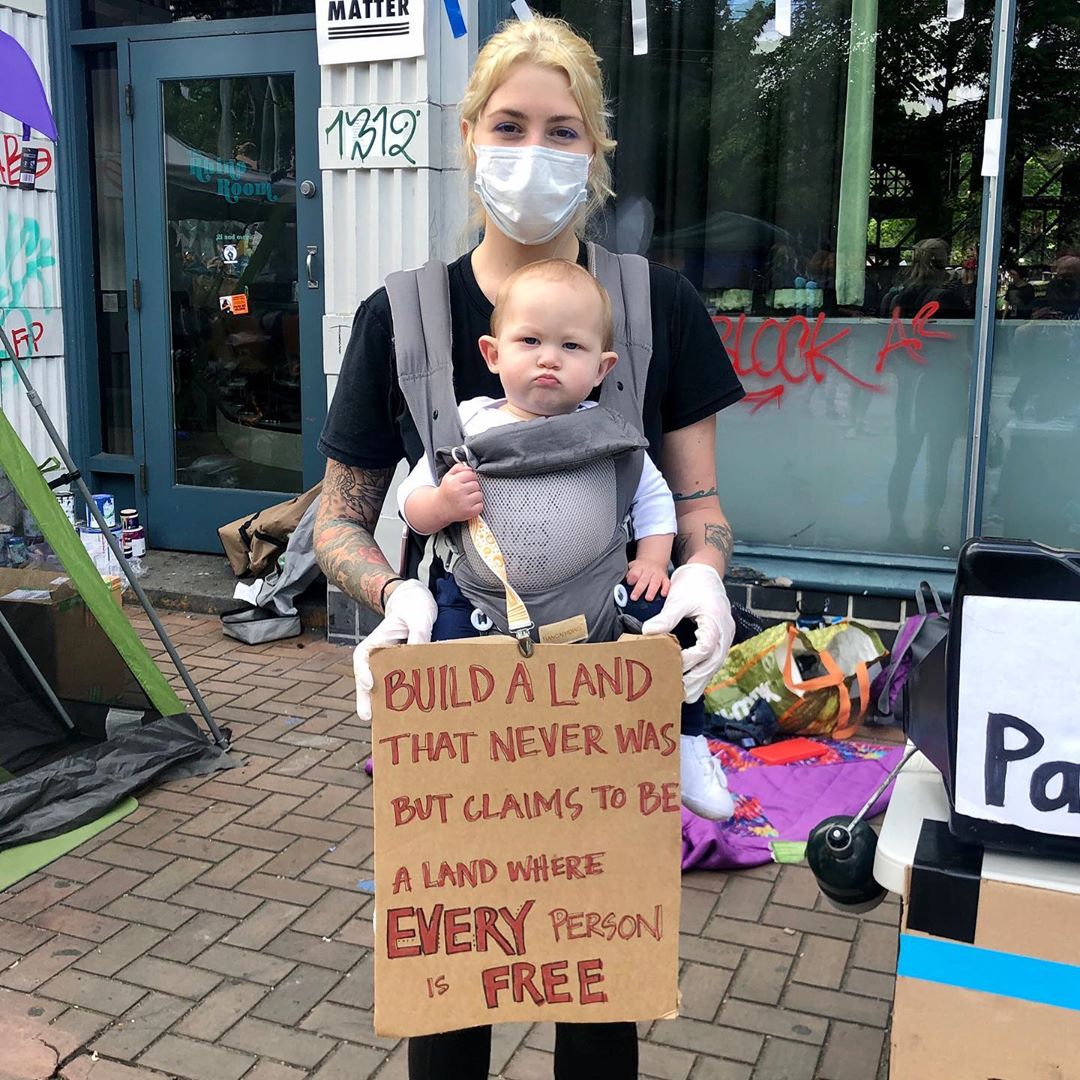 MATTER
1312
Rhino
Room
FP
BLOCK
BUILD A LAND
THAT NEVER WAS
BUT CLAIMS TO BE
A LAND WHERE
EVERY PERSON
IS FREE
Pa